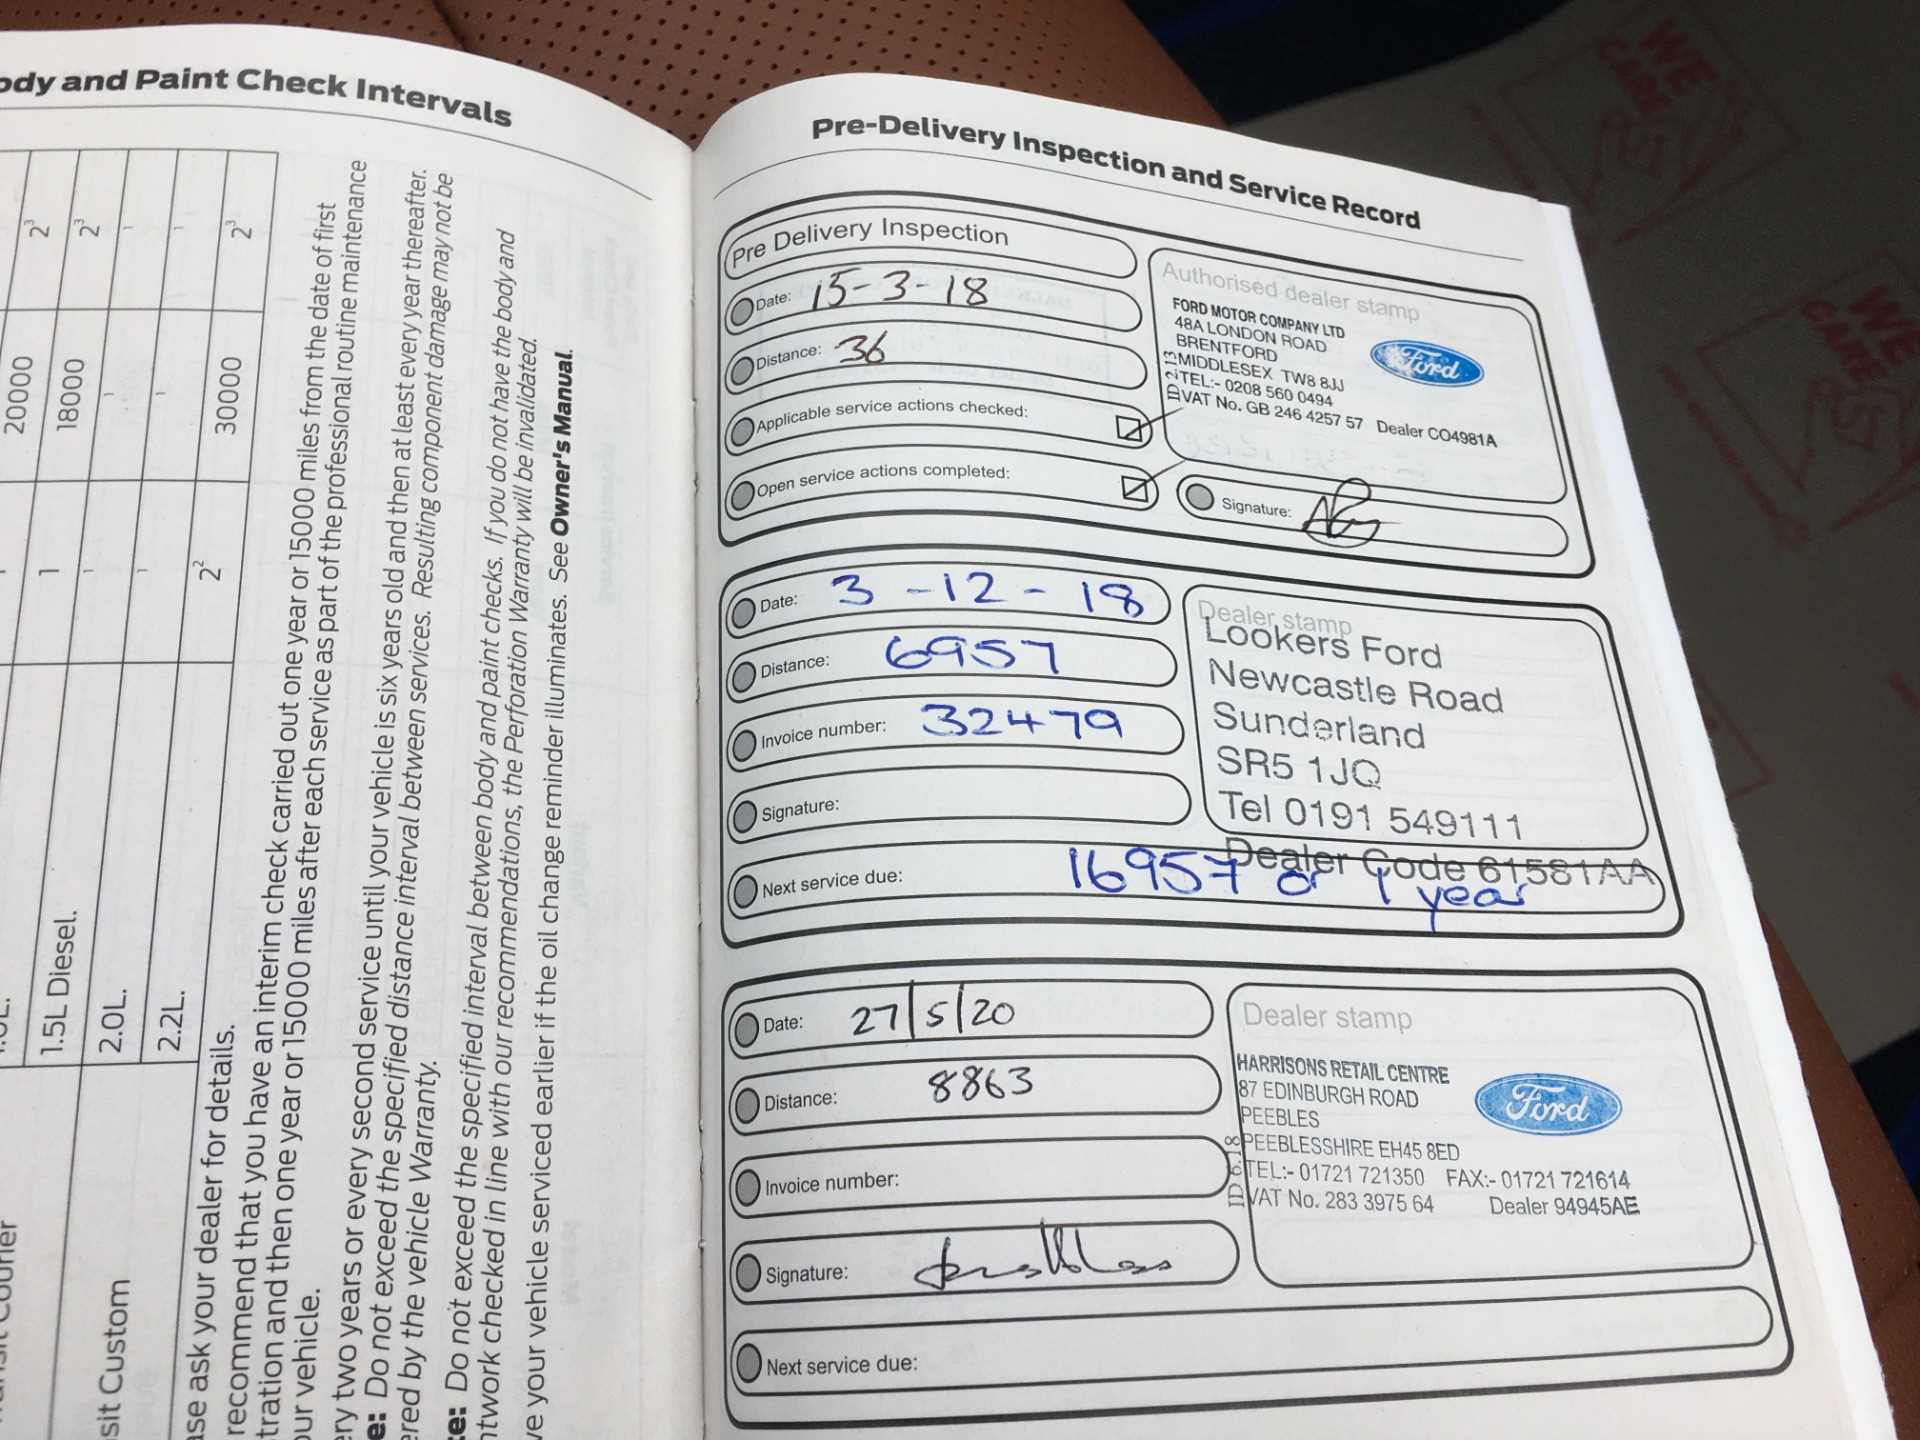 ody and Paint Check Intervals
20000
2³
1
18000
2³
1.5L Diesel.
2.0L.
2.2L.
2²
30000
2³
sit Custom
ase ask your dealer for details.
recommend that you have an interim check carried out one year or 15000 miles from the date of first
tration and then one year or 15000 miles after each service as part of the professional routine maintenance
our vehicle.
ery two years or every second service until your vehicle is six years old and then at least every year thereafter.
e: Do not exceed the specified distance interval between services. Resulting component damage may not be
ered by the vehicle Warranty.
te: Do not exceed the specified interval between body and paint checks. If you do not have the body and
ntwork checked in line with our recommendations, the Perforation Warranty will be invalidated.
ve your vehicle serviced earlier if the oil change reminder illuminates. See Owner's Manual.
Pre-Delivery Inspection and Service Record
Pre Delivery Inspection
Date: 15-3-18
Distance: 36
Applicable service actions checked:
Open service actions completed:
Authorised dealer stamp
FORD MOTOR COMPANY LTD
48A LONDON ROAD
BRENTFORD
MIDDLESEX TW8 8JJ
TEL:- 0208 560 0494
VAT No. GB 246 4257 57 Dealer CO4981A
Ford
Signature:
Date: 3-12-18
Distance: 6957
Invoice number: 32479
Signature:
Next service due: 16957 or 1 year
Dealer stamp
Lookers Ford
Newcastle Road
Sunderland
SR5 1JQ
Tel 0191 549111
Dealer Code 61581AA
Date: 27/5/20
Distance: 8863
Invoice number:
Signature:
Next service due:
Dealer stamp
HARRISONS RETAIL CENTRE
87 EDINBURGH ROAD
PEEBLES
PEEBLESSHIRE EH45 8ED
TEL:- 01721 721350 FAX:- 01721 721614
VAT No. 283 3975 64 Dealer 94945AE
ID 6.18
Ford
WE CARE
WE CARE